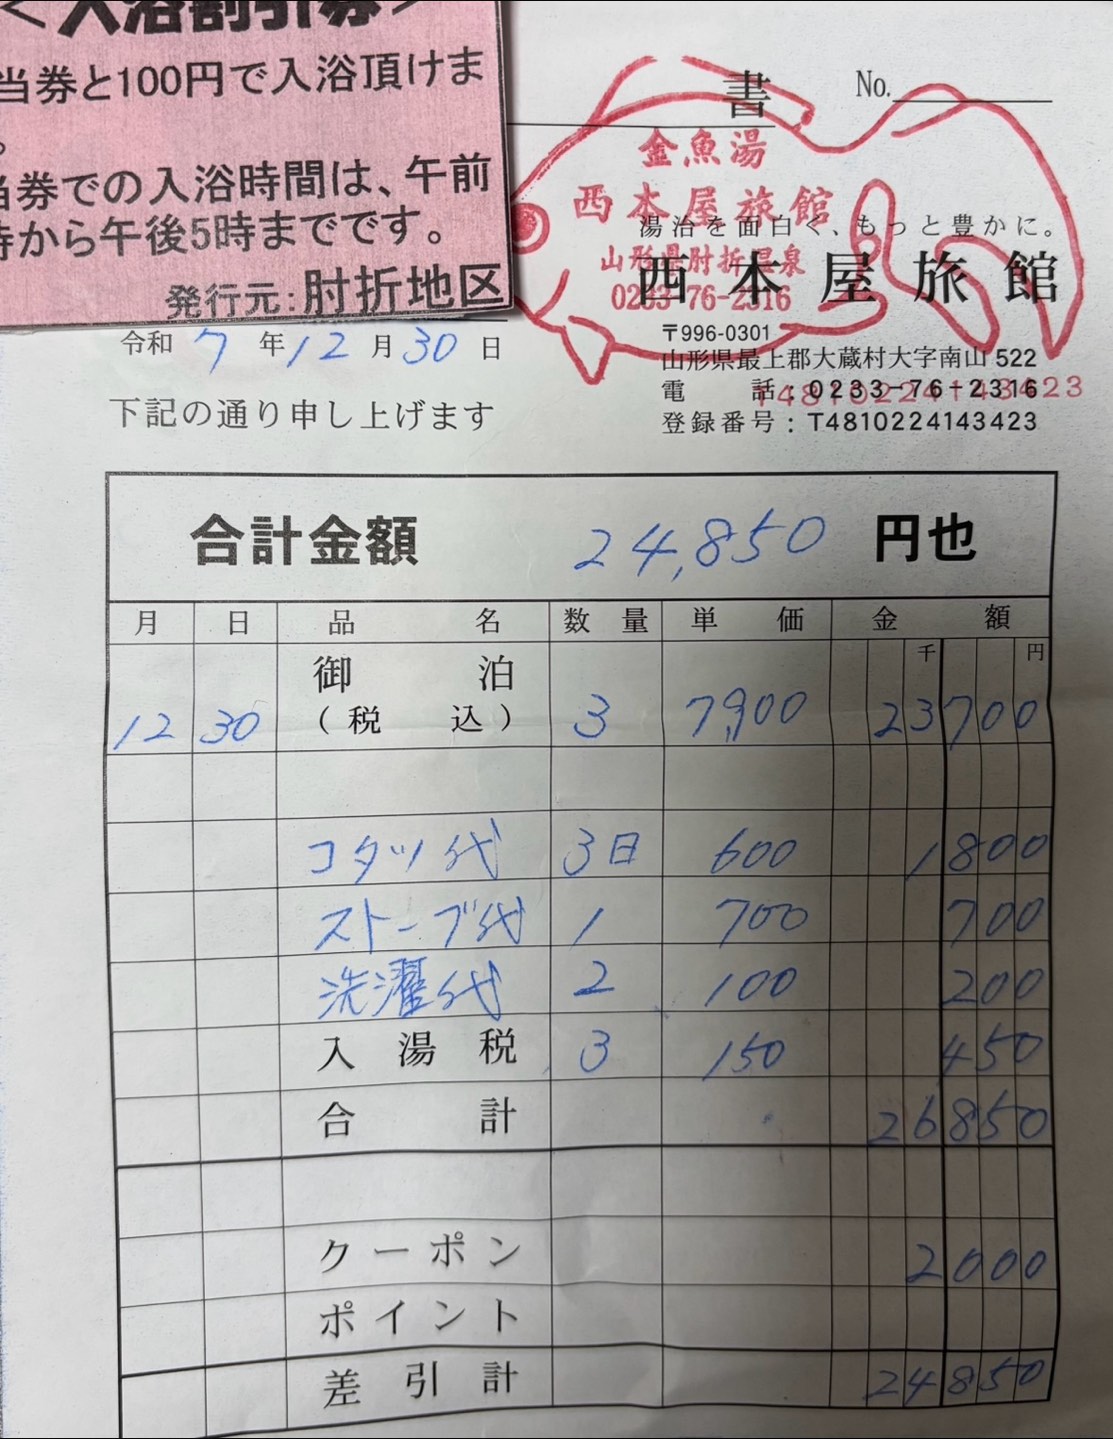 <入浴割引券>
当券と100円で入浴頂けま
。
当券での入浴時間は、午前
時から午後5時までです。
発行元:肘折地区
書
No.
金魚湯
西本屋旅館
山形県肘折温泉
0233-76-2316
湯治を面白く、もっと豊かに。
西本屋旅館
〒996-0301
山形県最上郡大蔵村大字南山 522
電話:0233-76-2316
T4810224143423
登録番号:T4810224143423
令和 7 年 12 月 30 日
下記の通り申し上げます
合計金額 24,850 円也
月 日 品名 数量 単価 金額
千 円
御泊
12 30 (税込) 3 7,900 23700
コタツ代 3日 600 1800
ストーブ代 1 700 700
洗濯代 2 100 200
入湯税 3 150 450
合計 26850
クーポン 2000
ポイント
差引計 24850